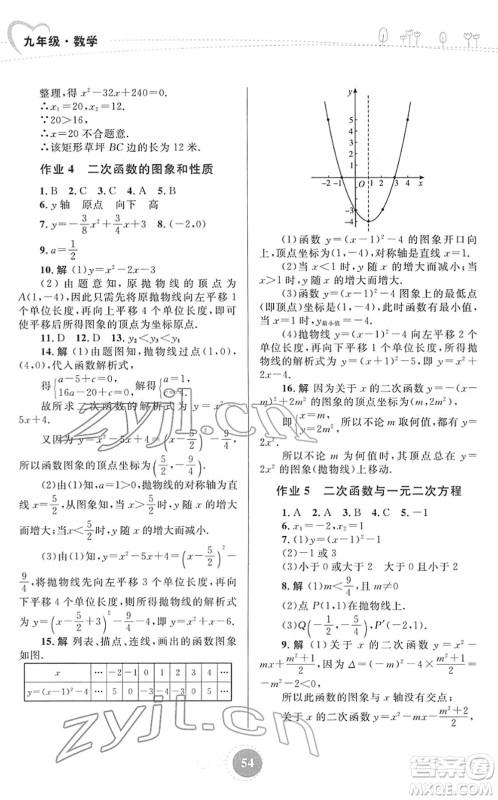 九年级·数学
整理，得 x²－32x＋240＝0.
∴x₁＝20，x₂＝12.
∵20＞16，
∴x＝20 不合题意.
∴该矩形草坪 BC 边的长为 12 米.
作业 4 二次函数的图象和性质
1. B 2. C 3. C 4. A 5. B
6. y 轴 原点 向下 高
7. y＝－3/8x²＋3/4x＋3 8. (－2，0)
9. a＝1/2
10. 解 (1)y＝x²－2x－3
(2)由题意知，原抛物线的顶点为
A(1，－4)，因此只需将原抛物线向左平移 1
个单位长度，再向上平移 4 个单位长度，即可
使平移后所得图象的顶点为坐标原点.
11. D 12. D 13. y₂＜y₁＜y₃
14. 解 (1)由题意知，把抛物线过点(1，0)，
(4，0)，代入函数解析式，
得{a－5＋c＝0，
16a－20＋c＝0. 解得{a＝1，
c＝4.
故所求二次函数的解析式为 y＝x²－
5x＋4.
又因为 y＝x²－5x＋4＝(x－5/2)²－9/4，
所以函数图象的顶点坐标为(5/2，－9/4).
(2)由(1)知，a＝1＞0，
所以抛物线的对称轴为直线
x＝5/2，且开口向上，当 x＜5/2时，y 随 x 的增大
而减小；当 x＞5/2时，y 随 x 的增大而增大.
(3)由(1)知，y＝x²－5x＋4＝(x－5/2)²－
9/4，将抛物线向左平移 3 个单位长度，向上平移
4 个单位长度，所得新抛物线的解析式为
y＝(x－5/2＋3)²－9/4＋4＝(x＋1/2)²＋7/4.
15. 解 列表、描点、连线，画出的函数图象
如图.
x … －2 －1 0 1 2 3 4 …
y＝(x－1)²－4 … 5 0 －3 －4 －3 0 5 …
y
5
4
3
2
1
－2 －1 O 1 2 3 4 x
－3
－4
(1)函数 y＝(x－1)²－4 的图象开口向
上，顶点坐标为(1，－4)，对称轴是直线 x＝1.
(2)当 x＞1 时，y 随 x 的增大而增大；当
x＜1 时，y 随 x 的增大而减小.
(3)函数 y＝(x－1)²－4 图象上的最低点
(即顶点)坐标为(1，－4)，此时函数有最小值，
y最小值＝－4.
(4)抛物线 y＝(x－1)²－4 向左平移 2 个
单位长度，再向上平移 4 个单位长度，所得新抛
物线的解析式为 y＝(x＋1)²，即 y＝x²＋2x＋1.
16. 解 因为关于 x 的二次函数 y＝(x－
m)²＋2m² 的图象的顶点坐标为(m，2m²)，
即{x＝m，
y＝2m²，所以不论 m 取何值，都有 y＝
2x². 所以不论 m 取任何值，其顶点都在 y＝
2x² 的图象(抛物线)上移动.
作业 5 二次函数与一元二次方程
1. A 2. A 3. C 4. D 5. －1
6. x₁＝－2，x₂＝1 7. (1)y＝
(2)－1或3
(3)小于 0 或大于 2 大于 0 且小于 2
8. 解 (1)m＜9/4
(2)点 P(1，0)在抛物线上.
(3)Q(－9/4，0)，P′(－2，1).
9. 解 (1)关于 x 的二次函数 y＝x²－
mx＋(m²＋1)/2，因为 Δ＝(－m)²－4×(m²＋1)/2＝－m²－2＜0，
所以此函数的图象与 x 轴没有交点.
关于 x 的二次函数 y＝x²－mx－(m²＋2)/2，
54
zyjl.cn
zyjl.cn
答案圈
MXQE.COM